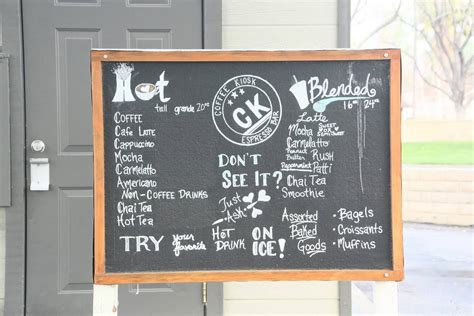 Hot
tall grande 20oz
COFFEE
Cafe LATTE
Cappuccino
Mocha
Carmelatto
Americano
Non-Coffee Drinks
Chai Tea
Hot Tea
COFFEE KIOSK
CK
ESPRESSO BAR
DON'T
SEE IT?
Just
Ask
Blended
16oz 24oz
Latte
Mocha
Carmelatto
Peanut
Butter RUSH
Peppermint Patti
Chai Tea
Smoothie
TRY your favorite HOT DRINK ON ICE!
Assorted
Baked
Goods
• Bagels
• Croissants
• Muffins